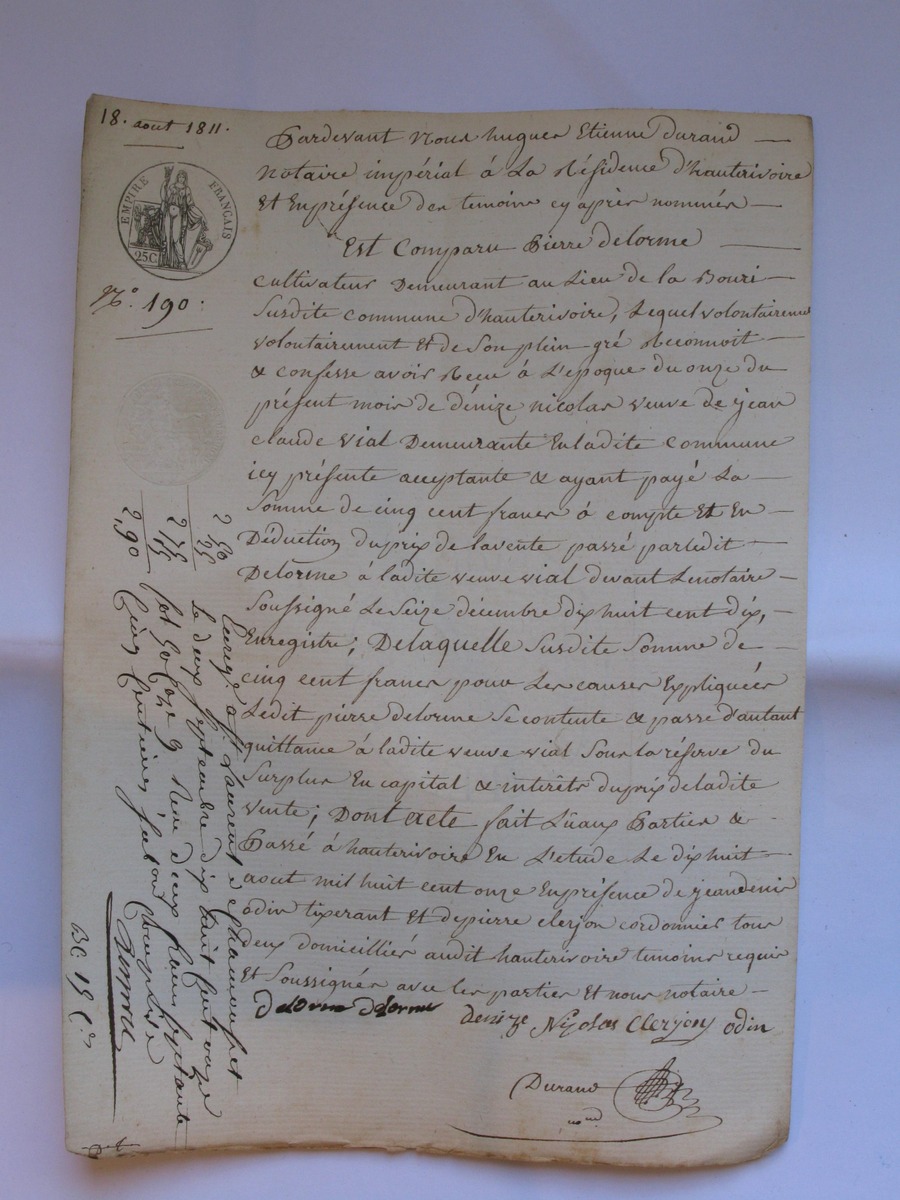 18. aout 1811.
EMPIRE FRANÇAIS
25C
N.o 190.
Pardevant Nous hugues Etienne Durand
Notaire impérial à La Résidence d'hauterivoire
Et Enprésence des temoins cy après nommés
Est Comparu Pierre delorme
Cultivateur Demeurant au Lieu de la Bouri
Susdite commune d'hauterivoire, Lequel volontairement
volontairement Et de Son plein gré Reconnoit
& confesse avoir Recu à L'époque du onze du
présent mois de dénize nicolas veuve de jean
claude vial Demeurante Enladite commune
icy présente acceptante & ayant payé La
Somme de cinq cent francs à compte Et En
Déduction duprix de lavente passé parledit
Delorme à ladite veuve vial devant Lenotaire
Soussigné Le Seize décembre dix huit cent dix,
Enregistré; Delaquelle Susdite Somme de
cinq cent francs pour Les causes Expliquées
Ledit pierre delorme Se contente & passe d'autant
quittance à ladite veuve vial Sous la réserve du
Surplus En capital & intérêts duprix deladite
vente; Dont acte fait Luaux Parties &
Passé à hauterivoire En L'etude Le dix huit
aout mil huit cent onze Enprésence de jean denis
odin tixerant Et depierre clerjon cordonnier tous
deux domicilliés audit hauterivoire temoins requis
Et Soussignés avec les parties Et nous notaire
delorme delorme
denize Nicolas Clerjon odin
Durand
not.
2 50
25
2 75
15
2,90
Enreg.é à St. Laurent de Chamousset
Le deux Septembre dix huit Cent onze
fol. 50 Caze 9 Reçu deux francs Soixante
Quinze Centimes subvention Comprise
BC. 19 C.